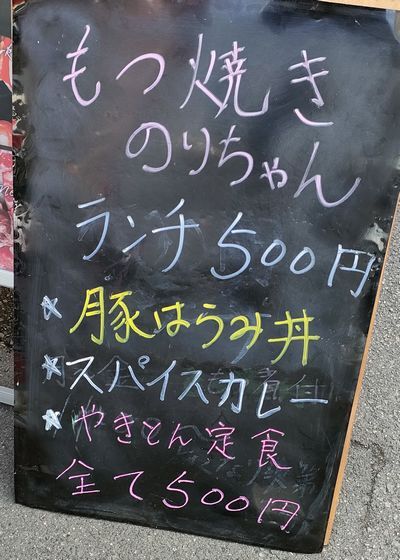 もつ焼き
のりちゃん
ランチ500円
☆豚はらみ丼
☆スパイスカレー
☆やきとん定食
全て500円